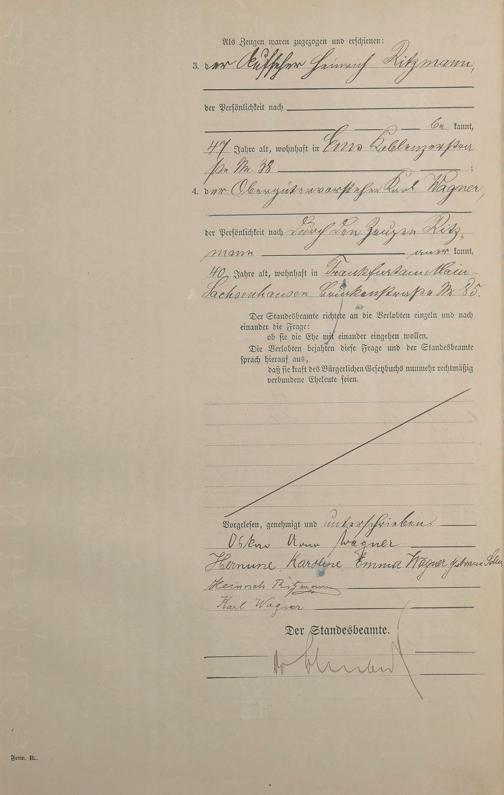 Als Zeugen waren zugezogen und erschienen:
3. der Kutscher Heinrich Ritzmann,
der Persönlichkeit nach
be kannt,
47 Jahre alt, wohnhaft in Ems Koblenzerstra
ße Nr. 38 ;
4. der Obergütervorsteher Karl Wagner,
der Persönlichkeit nach durch den Zeugen Ritz-
mann aner kannt,
40 Jahre alt, wohnhaft in Frankfurt am Main-
Sachsenhausen Brückenstraße Nr. 85.
Der Standesbeamte richtete an die Verlobten einzeln und nach
einander die Frage:
ob sie die Ehe mit einander eingehen wollen.
Die Verlobten bejahten diese Frage und der Standesbeamte
sprach hierauf aus,
daß sie kraft des Bürgerlichen Gesetzbuchs nunmehr rechtmäßig
verbundene Eheleute seien.
Vorgelesen, genehmigt und unterschrieben.
Oskar Arno Wagner
Hermine Karoline Emma Wagner geborene
Heinrich Ritzmann
Karl Wagner
Der Standesbeamte.
Form. B.